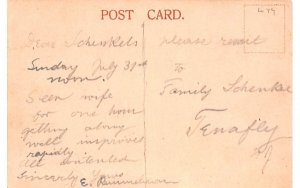 POST CARD.
Dear Schenkels
Sunday July 31st
noon.
Seen wife
for one hour
getting along
well improves
rapidly.
All contented
Sincerely Yours
E.
please remit
To
Family Schenkel
Tenafly
NJ